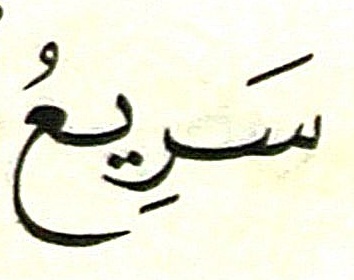 سَرِيعُ